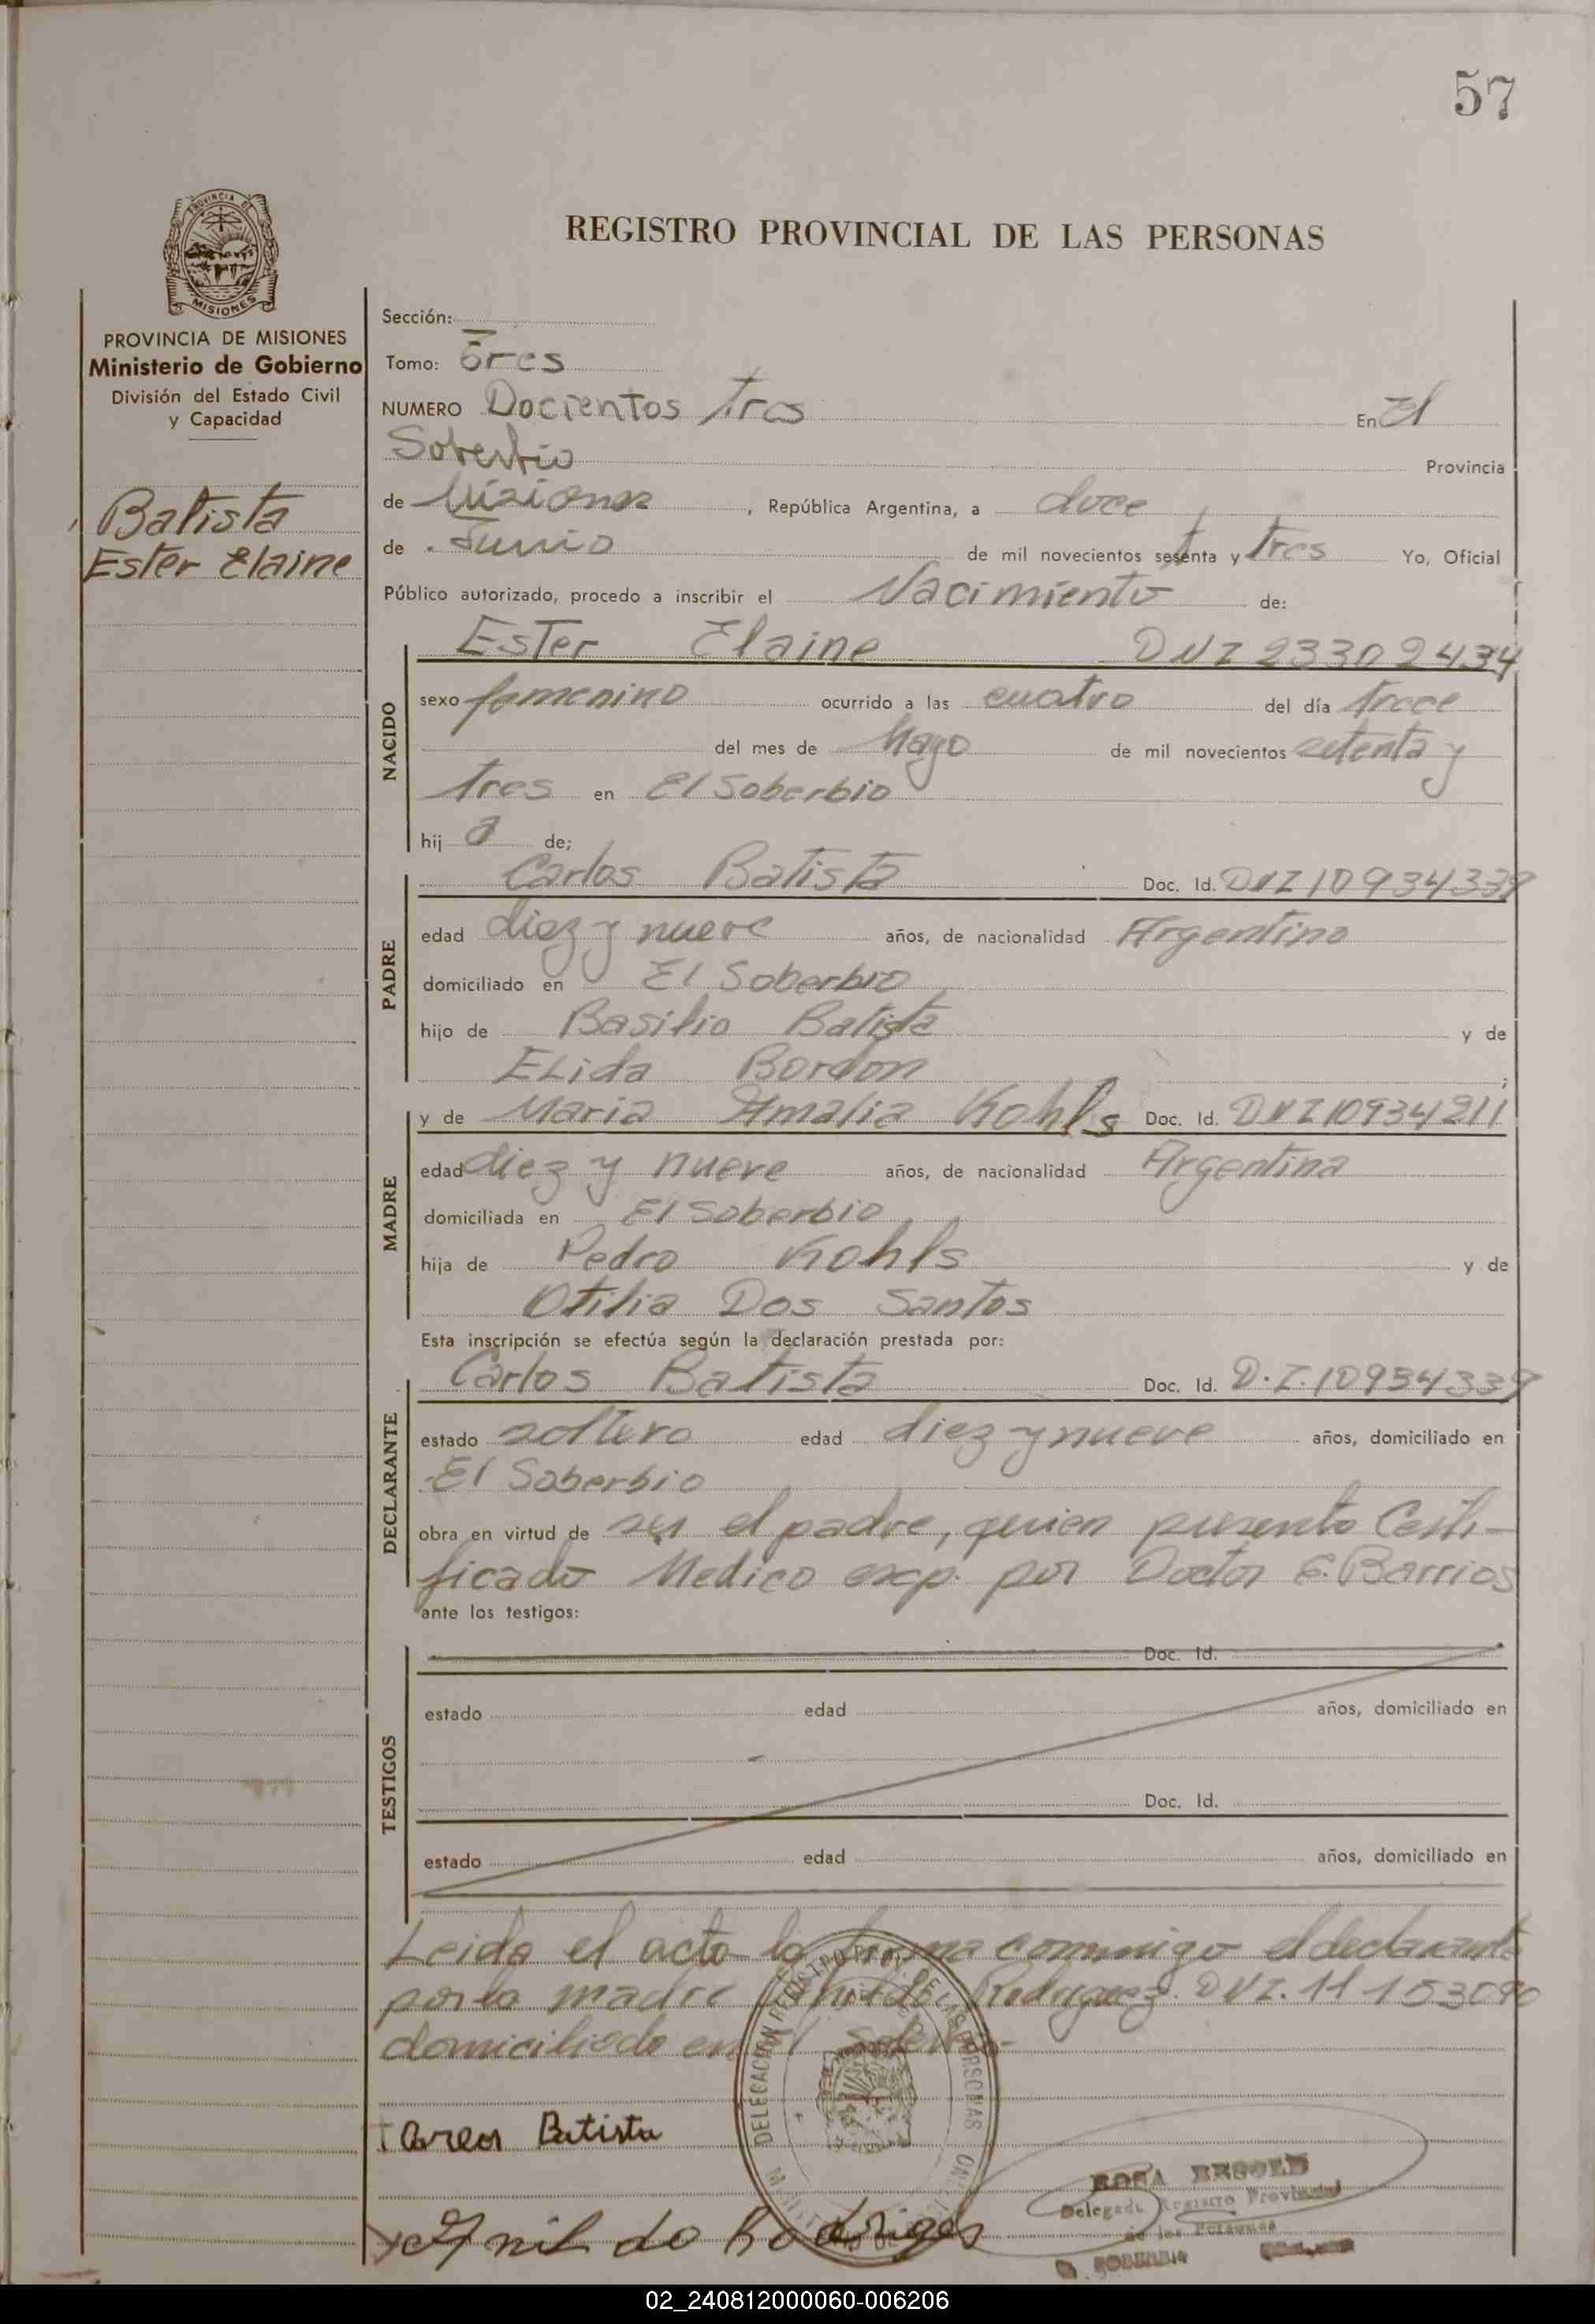 57
PROVINCIA DE
MISIONES
REGISTRO PROVINCIAL DE LAS PERSONAS
PROVINCIA DE MISIONES
Ministerio de Gobierno
División del Estado Civil
y Capacidad
Batista
Ester Elaine
Sección:
Tomo: Tres
NUMERO Docientos tres En El
Soberbio Provincia
de Misiones, República Argentina, a doce
de Junio de mil novecientos setenta y tres Yo, Oficial
Público autorizado, procedo a inscribir el Nacimiento de:
NACIDO
Ester Elaine DNI 23302434
sexo femenino ocurrido a las cuatro del día trece
del mes de Mayo de mil novecientos setenta y
tres en El Soberbio
hij a de;
PADRE
Carlos Batista Doc. Id. DNI 10934339
edad diez y nueve años, de nacionalidad Argentino
domiciliado en El Soberbio
hijo de Basilio Batista y de
ELida Bordon ;
MADRE
y de Maria Amalia Kohls Doc. Id. DNI 10934211
edad diez y nueve años, de nacionalidad Argentina
domiciliada en El Soberbio
hija de Pedro Kohls y de
Otilia Dos Santos
Esta inscripción se efectúa según la declaración prestada por:
DECLARANTE
Carlos Batista Doc. Id. D.I. 10934339
estado soltero edad diez y nueve años, domiciliado en
El Soberbio
obra en virtud de ser el padre, quien presento Certi-
ficado Medico exp. por Doctor E. Barrios
ante los testigos:
TESTIGOS
Doc. Id.
estado edad años, domiciliado en
Doc. Id.
estado edad años, domiciliado en
Leida el acta la firma conmigo el declarante
por la madre Rodriguez DNI. 11153090
domiciliado en El Soberbio-
DELEGACION REGISTRO PROV. DE LAS PERSONAS
Carlos Batista
Delegada Registro Provincial
de las Personas
EL SOBERBIO
02_240812000060-006206